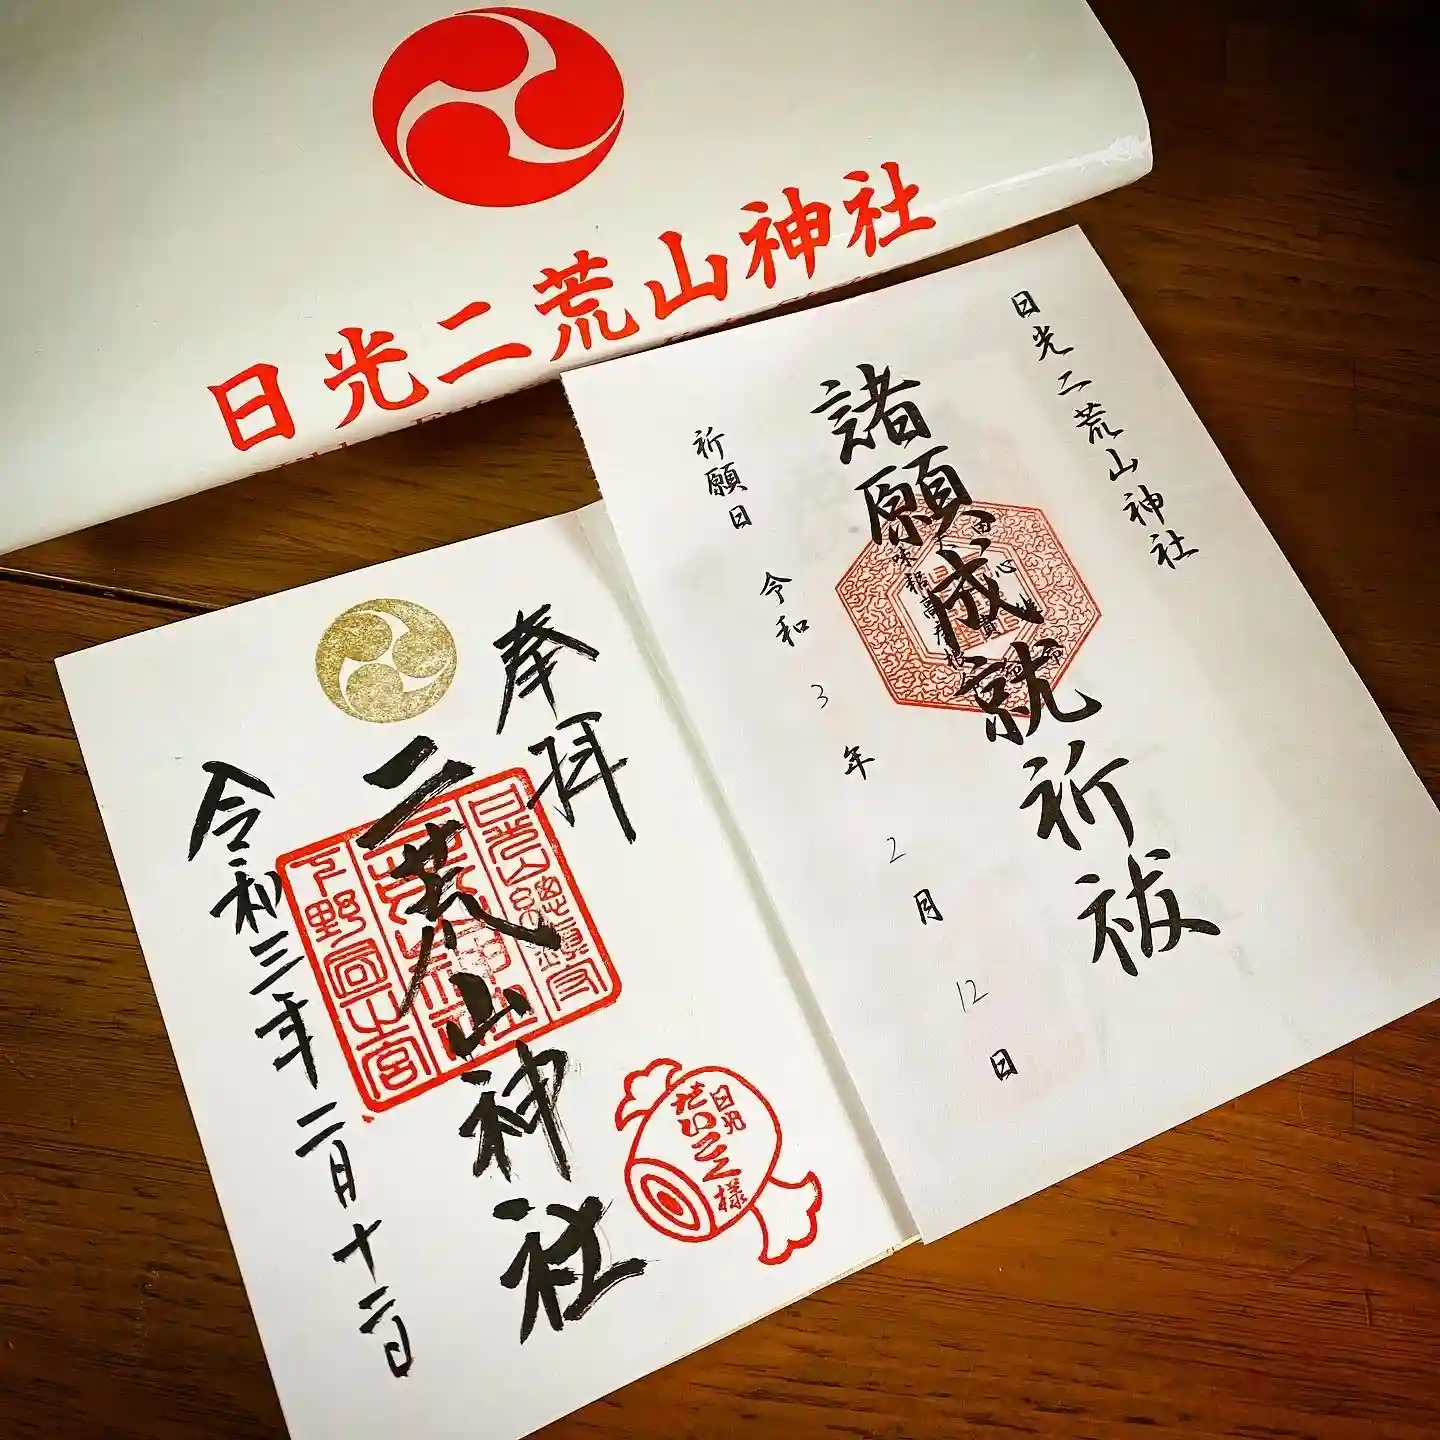 日光二荒山神社
日光二荒山神社
諸願成就祈祓
祈願日 令和 3 年 2 月 12 日
奉拝
二荒山神社
令和三年二月十二日
下野國一之宮
日光
だいこく様